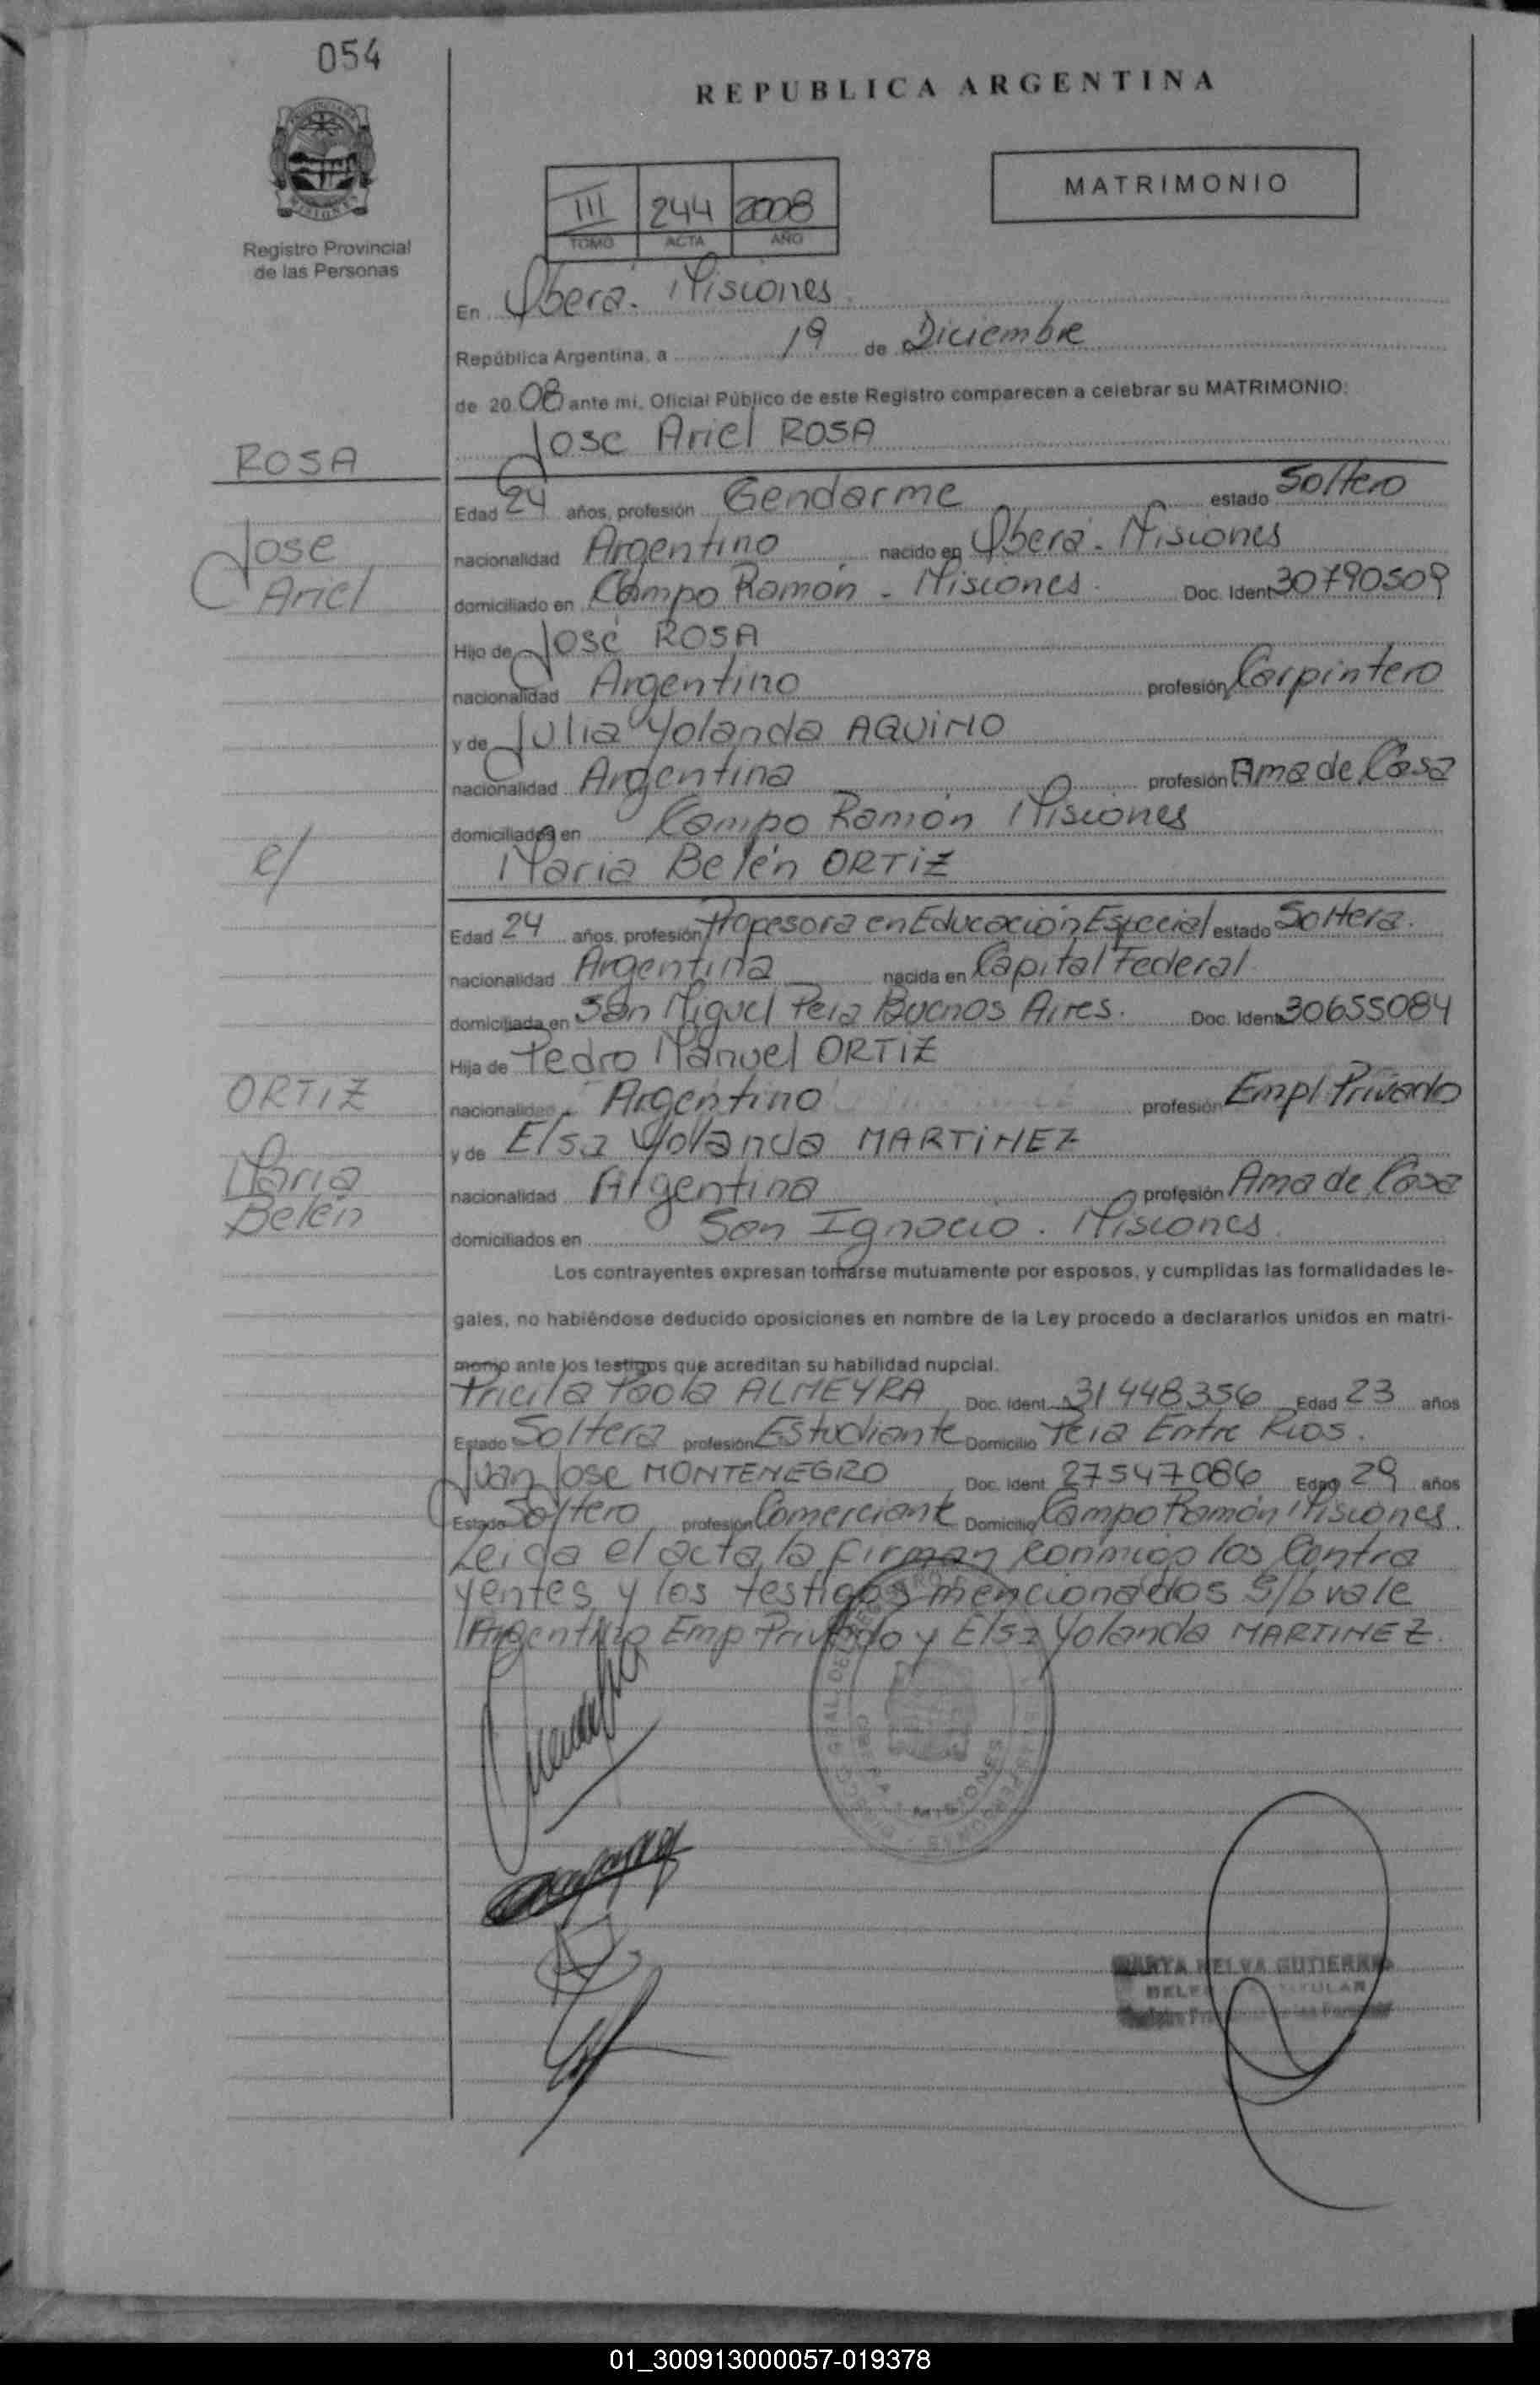 054
REPUBLICA ARGENTINA
MATRIMONIO
III 244 2008
TOMO ACTA AÑO
Registro Provincial
de las Personas
En Oberá. Misiones
República Argentina, a 19 de Diciembre
de 20 08 ante mi, Oficial Público de este Registro comparecen a celebrar su MATRIMONIO:
Jose Ariel ROSA
ROSA
Jose
Ariel
Edad 24 años, profesión Gendarme estado Soltero
nacionalidad Argentino nacido en Oberá. Misiones
domiciliado en Campo Ramón - Misiones. Doc. Ident 30790509
Hijo de José ROSA
nacionalidad Argentino profesión Carpintero
y de Julia Yolanda AQUINO
nacionalidad Argentina profesión Ama de Casa
domiciliados en Campo Ramón Misiones
e/
Maria Belén ORTIZ
Edad 24 años, profesión Profesora en Educación Especial estado Soltera.
nacionalidad Argentina nacida en Capital Federal
domiciliada en San Miguel Pcia Buenos Aires. Doc. Ident 30655084
Hija de Pedro Manuel ORTIZ
ORTIZ
Maria
Belén
nacionalidad Argentino profesión Empl Privado
y de Elsa Yolanda MARTINEZ
nacionalidad Argentina profesión Ama de Casa
domiciliados en San Ignacio. Misiones.
Los contrayentes expresan tomarse mutuamente por esposos, y cumplidas las formalidades le-
gales, no habiéndose deducido oposiciones en nombre de la Ley procedo a declararlos unidos en matri-
monio ante los testigos que acreditan su habilidad nupcial.
Pricila Paola ALMEYRA Doc. Ident. 31448356 Edad 23 años
Estado Soltera profesión Estudiante Domicilio Pcia Entre Rios.
Juan Jose MONTENEGRO Doc. Ident 27547086 Edad 29 años
Estado Soltero profesión Comerciante Domicilio Campo Ramón Misiones.
Leida el acta la firman conmigo los Contra
yentes y los testigos mencionados S/b vale
Argentino Emp Privado y Elsa Yolanda MARTINEZ.
MISIONES
GUTIERREZ
TITULAR
01_300913000057-019378